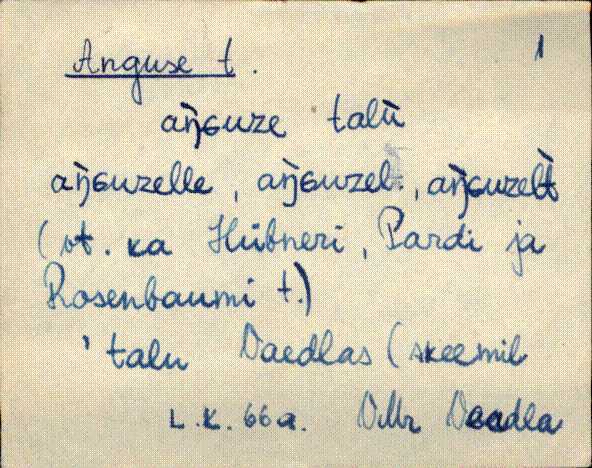 Anguse t. 1
aŋ̀ɢuze talù
aŋ̀ɢuzelle, aŋ̀ɢuzel, aŋ̀ɢuzelt̀
(vt. ka Hübneri, Pardi ja
Rosenbaumi t.)
' talu Vaedlas (skeemil
L.K. 66a.